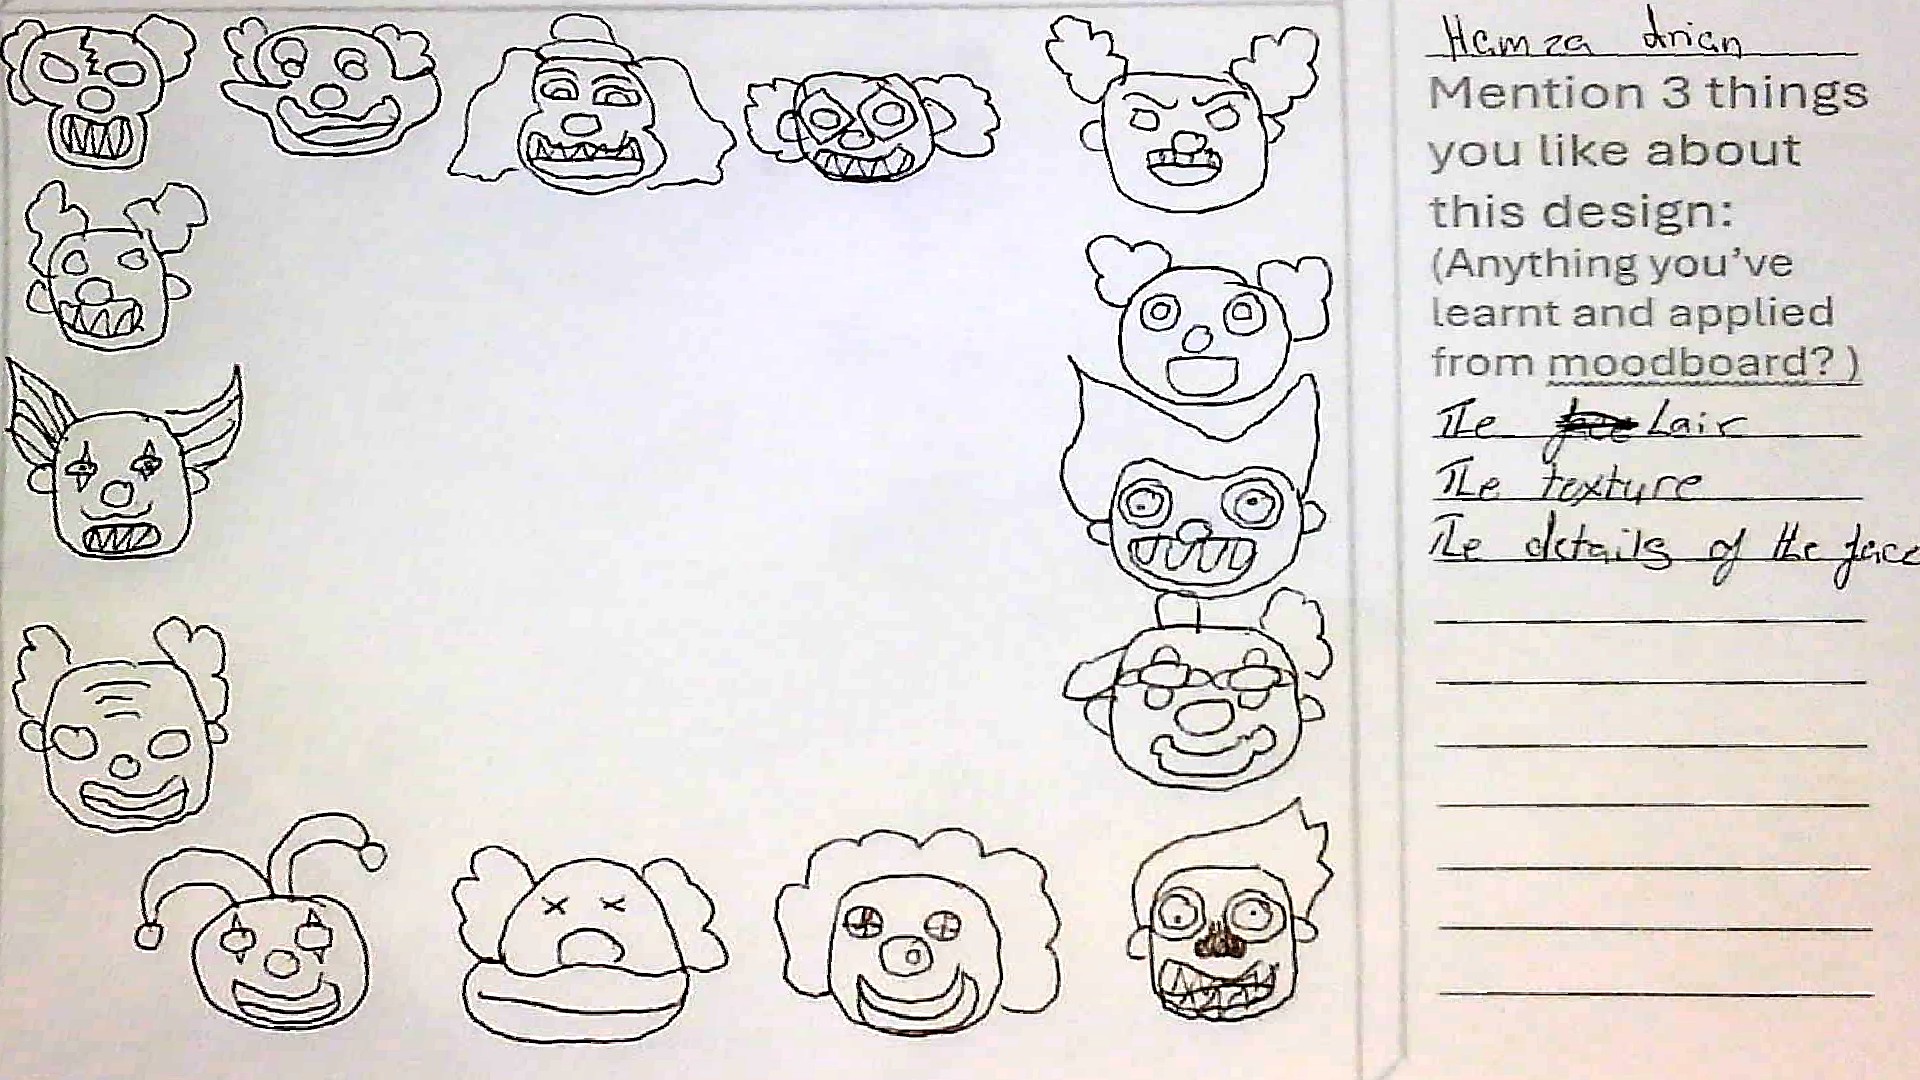 Hamza Arian
Mention 3 things
you like about
this design:
(Anything you've
learnt and applied
from moodboard? )
The hair
The texture
The details of the face